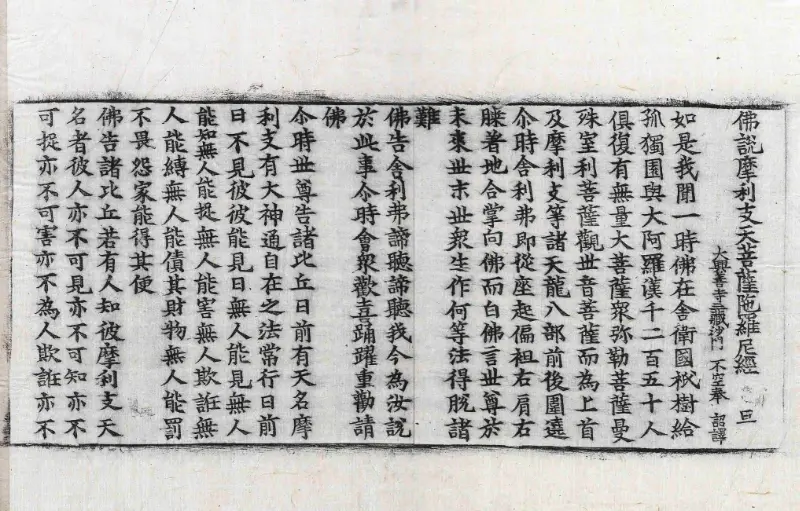 佛說摩利支天菩薩陀羅尼經
大興善寺三藏沙門不空奉 詔譯
如是我聞一時佛在舍衛國祇樹給
孤獨園與大阿羅漢千二百五十人
俱復有無量大菩薩衆弥勒菩薩曼
殊室利菩薩觀世音菩薩而為上首
及摩利支等諸天龍八部前後圍遶
尒時舍利弗即從座起偏袒右肩右
膝著地合掌向佛而白佛言世尊於
末來世末世衆生作何等法得脫諸
難
佛告舍利弗諦聽諦聽我今為汝說
於此事尒時會衆歡喜踊躍重勸請
佛
尒時世尊告諸比丘日前有天名摩
利支有大神通自在之法常行日前
日不見彼彼能見日無人能見無人
能知無人能捉無人能害無人欺誑無
人能縛無人能債其財物無人能罰
不畏怨家能得其便
佛告諸比丘若有人知彼摩利支天
名者彼人亦不可見亦不可知亦不
可捉亦不可害亦不為人欺誑亦不